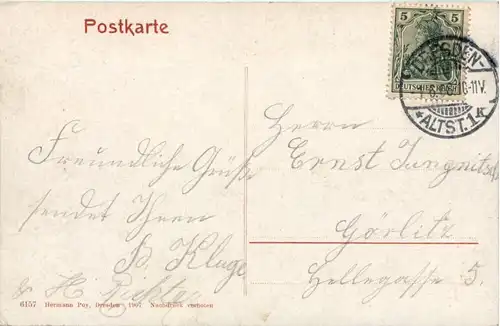 Postkarte
5
DEUTSCHES REICH
DRESDEN-
10-11V.
*ALTST.1k
Freundliche Grüße
sendet Ihnen
Kluge
u H.
Herrn
Ernst Jungnitsch
Görlitz
Hellegasse 5.
6157 Hermann Poy, Dresden 1907 Nachbilden verboten